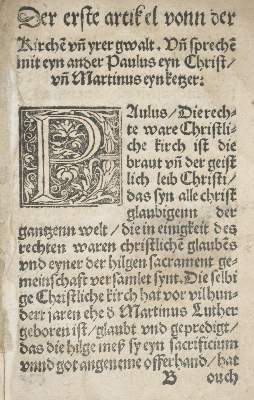 Der erste artikel vonn der
Kirchē vñ yrer gwalt. Vñ sprechē
mit eyn ander Paulus eyn Christ/
vñ Martinus eyn ketzer:
PAulus/Die rech-
te ware Christli-
che kirch ist die
braut vñ der geist
lich leib Christi/
das syn alle christ
glaubigenn der
gantzenn welt/die in einigkeit des
rechten waren christlichē glaubēs
vnd eyner der hilgen sacrament ge-
meinschaft versamlet synt. Die selbi
ge Christliche kirch hat vor vilhun-
dert jaren ehe d Martinus Luther
geboren ist/glaubt vnd gepredigt/
das die hilge meß sy eyn sacrificium
vnnd got angeneme offerhand/hat
B ouch